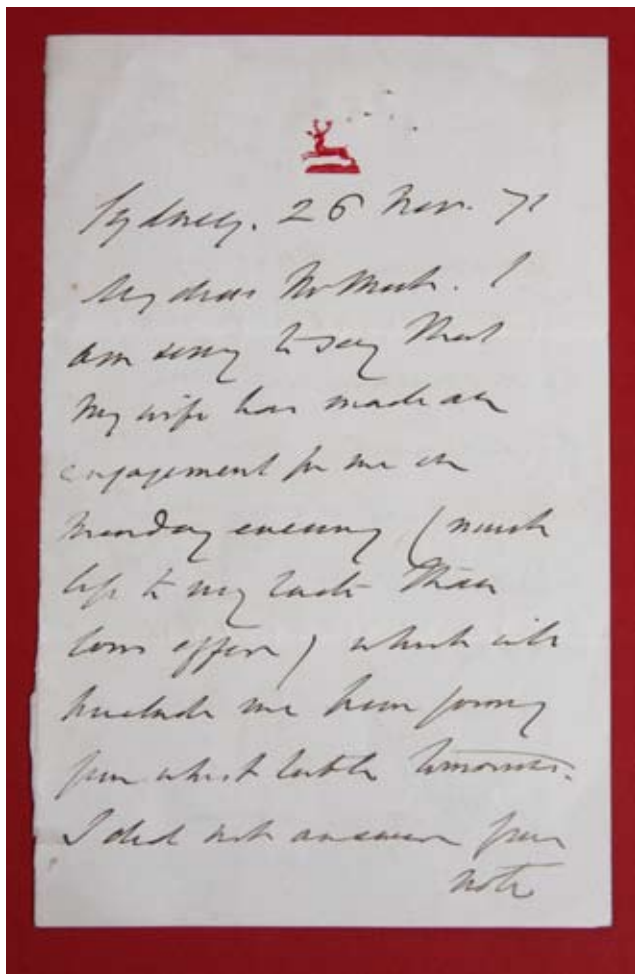 Sydney. 26 Nov. 71
My dear Mr I
am sorry to say that
my wife has made an
engagement for me on
Monday evening (much
less to my taste than
your offer) which will
preclude me from joining
your whist table tomorrow.
I did not answer your
note